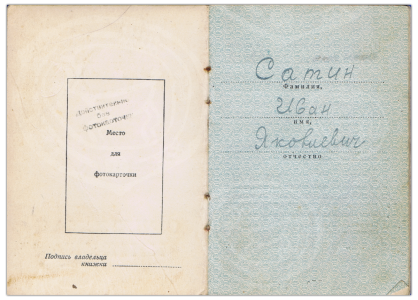 Действительно
без
фотокарточки
Место
для
фотокарточки
Подпись владельца
книжки
Сатин
Фамилия,
Иван
имя,
Яковлевич
отчество